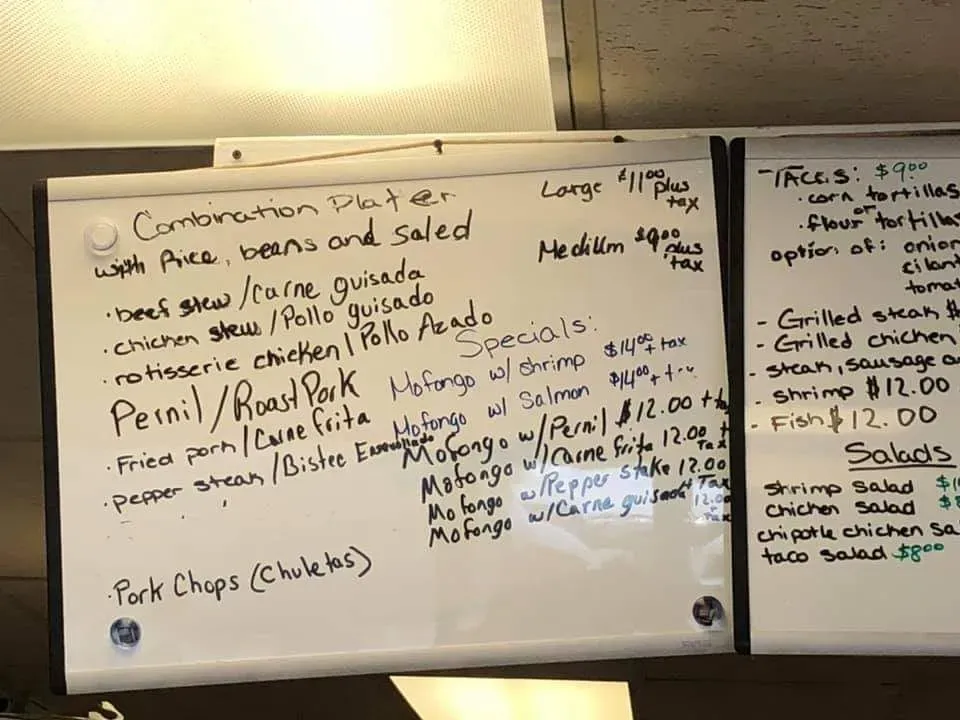 Combination Plater
with Rice, beans and saled
Large $11.00 plus
tax
Medium $9.00
plus
tax
· beef stew / Carne guisada
· chichen stew / Pollo guisado
· rotisserie chicken / Pollo Azado
Pernil / Roast Pork
· Fried porn / Carne frita
· pepper steak / Bistec
· Pork Chops (Chuletas)
Specials:
Mofongo w/ shrimp $14.00 + tax
Mofongo w/ Salmon $14.00 +
Mofongo w/ Pernil $12.00 +
Mofongo w/ Carne frita 12.00 +
Tax
Mofongo w/ Pepper stake 12.00
+ Tax
Mofongo w/ Carne guisada 12.00
+
Tax
- TACES: $9.00
· corn tortillas
or
· flour tortilla
option of: onion
cilant
tomat
- Grilled steak $
- Grilled chicken
- steak, sausage
- shrimp $12.00
- Fish $12.00
Salads
shrimp Salad $1
chicken Salad $
chipotle chicken Sa
taco Salad $8.00